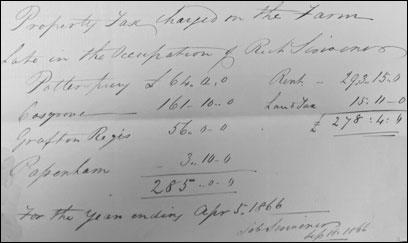 Property Tax Charged on the Farm
Late in the Occupation of Richd Scrivener
Potterspury £ 64.0.0 Rent - 293.15.0
Cosgrove 161-10-0 Land Tax 15-11-0
Grafton Regis 56-0-0 £ 278:4:0
Papenham - 3-10-0
285-0-0
For the Year ending Apr 5. 1866
Job Scrivener
1866